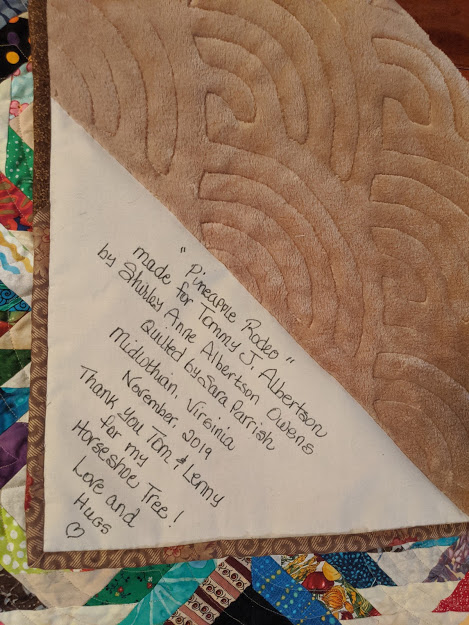 "Pineapple Rodeo"
made for Tommy J. Albertson
by Shirley Anne Albertson Owens
Quilted by Sara Parrish
Midlothian, Virginia
November, 2019
Thank you Tom & Lenny
for my
Horseshoe Tree!
Love and
Hugs
♡